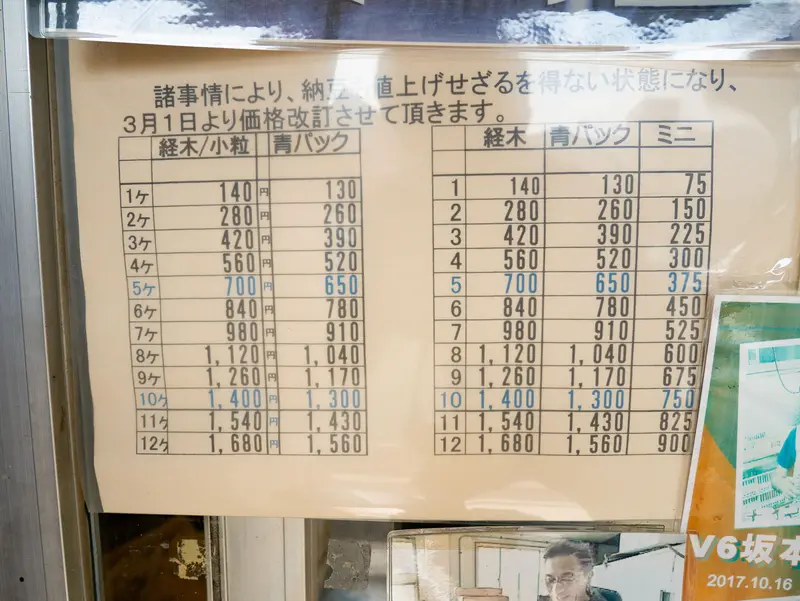 諸事情により、納豆 値上げせざるを得ない状態になり、
3月1日より価格改訂させて頂きます。
経木/小粒 青パック
1ヶ 140 円 130
2ヶ 280 円 260
3ヶ 420 円 390
4ヶ 560 円 520
5ヶ 700 円 650
6ヶ 840 円 780
7ヶ 980 円 910
8ヶ 1,120 円 1,040
9ヶ 1,260 円 1,170
10ヶ 1,400 円 1,300
11ヶ 1,540 円 1,430
12ヶ 1,680 円 1,560
経木 青パック ミニ
1 140 130 75
2 280 260 150
3 420 390 225
4 560 520 300
5 700 650 375
6 840 780 450
7 980 910 525
8 1,120 1,040 600
9 1,260 1,170 675
10 1,400 1,300 750
11 1,540 1,430 825
12 1,680 1,560 900
V6坂本
2017.10.16